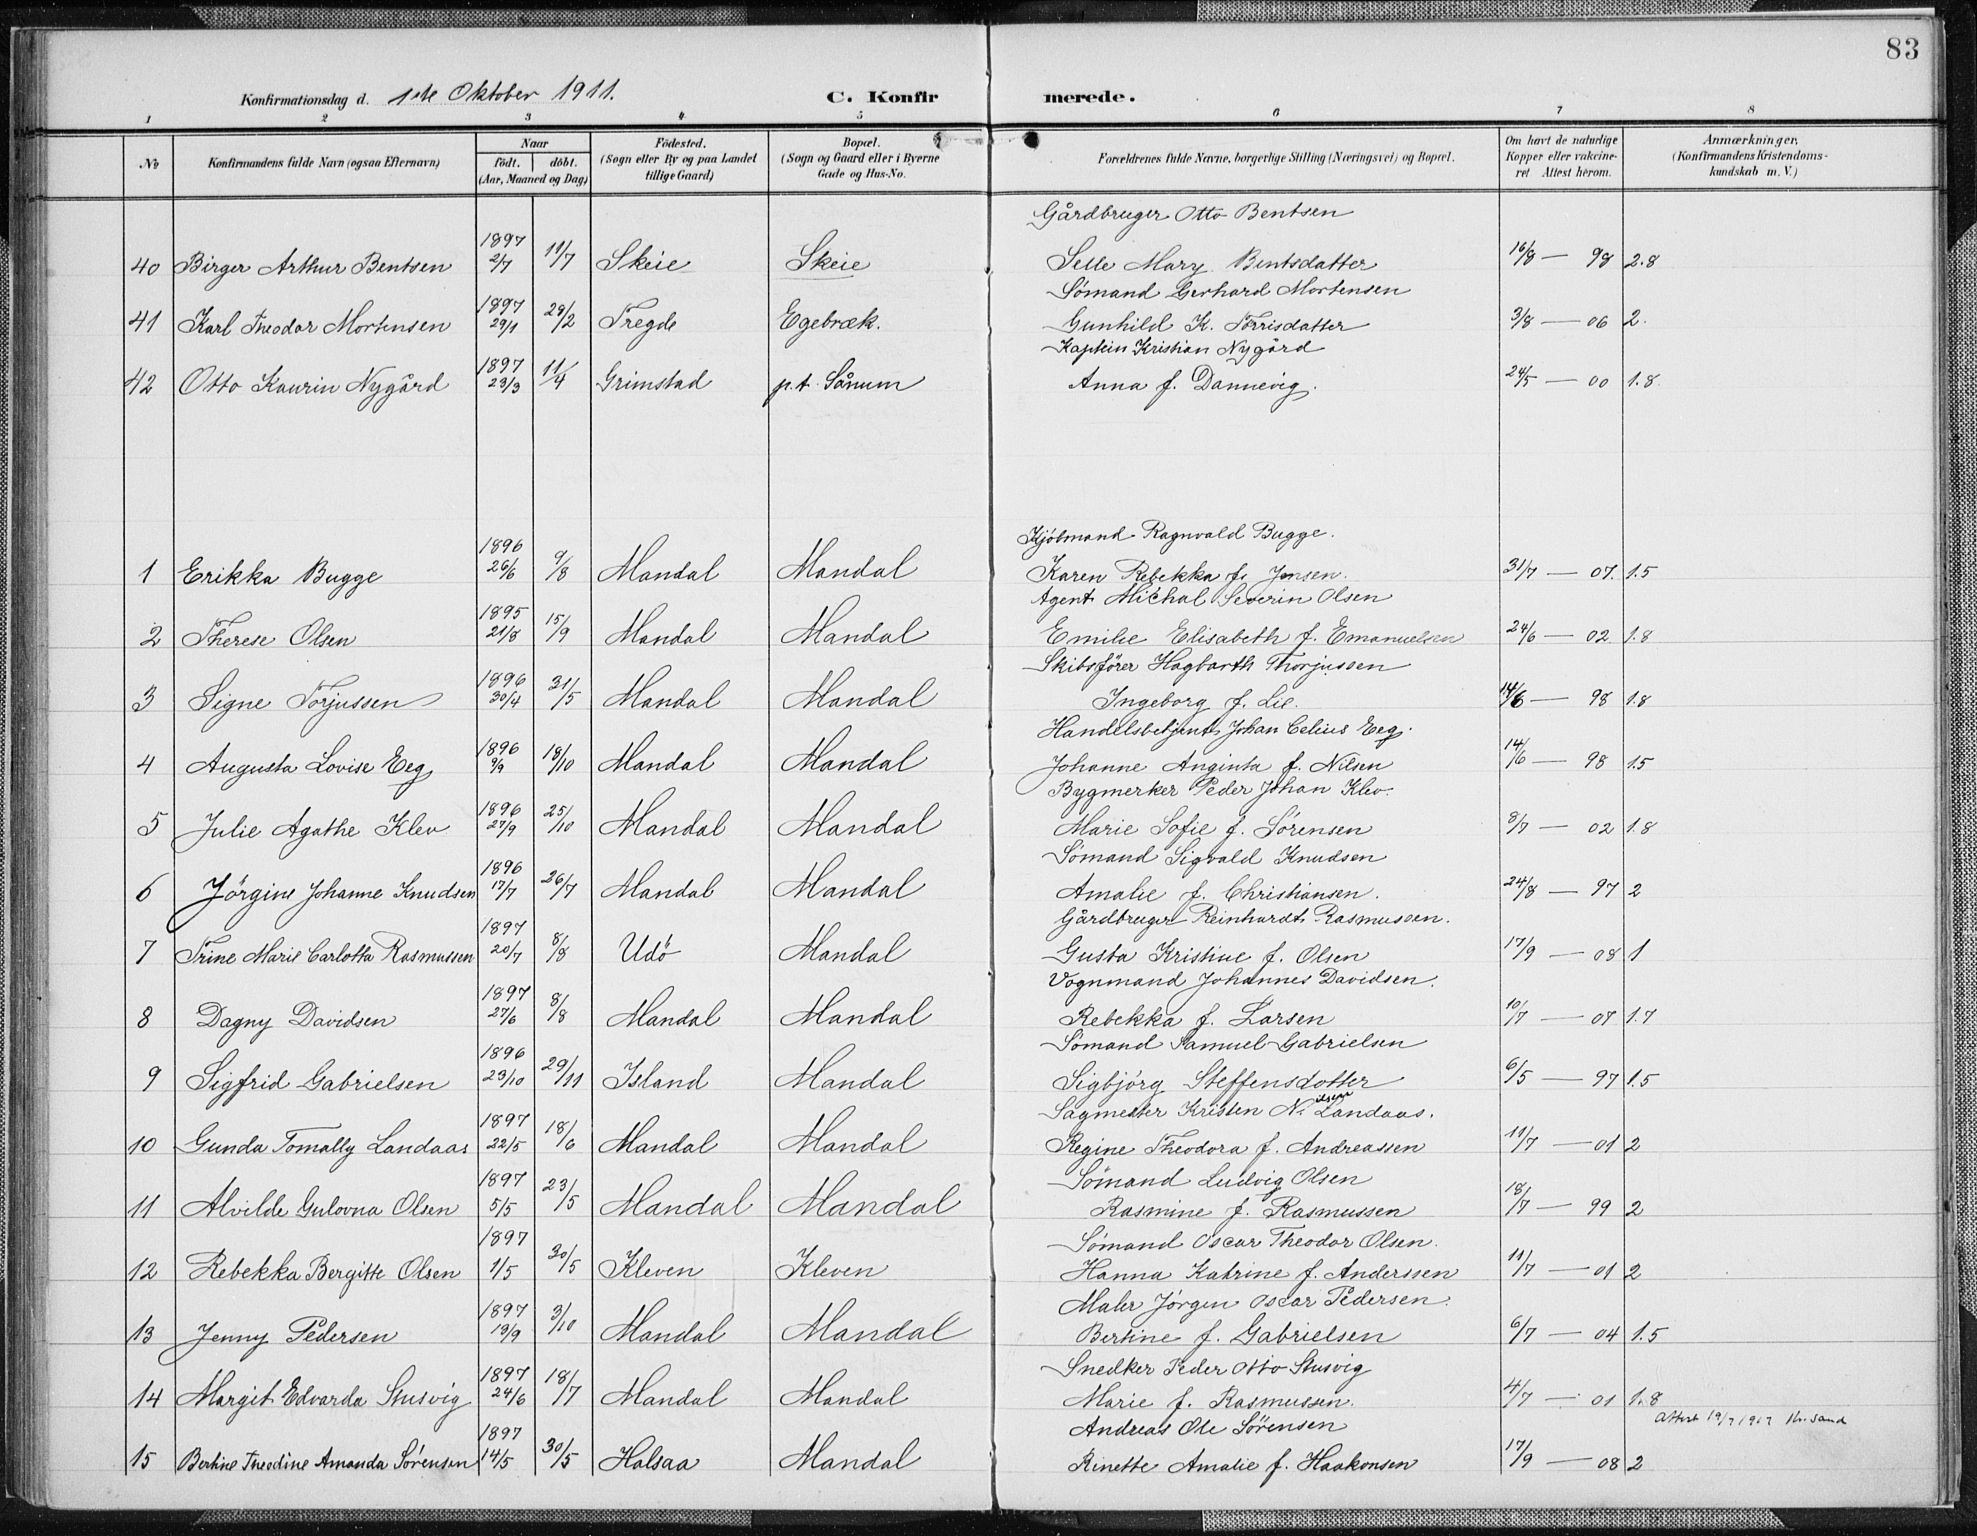 83
Konfirmationsdag d. 1ste Oktober 1911. C. Konfirmerede.
1 2 3 4 5 6 7 8
No Konfirmandens fulde Navn (ogsaa Efternavn) Naar födt. döbt. (Aar, Maaned og Dag) Födested. (Sogn eller By og paa Landet tillige Gaard) Bopæl. (Sogn og Gaard eller i Byerne Gade og Hus-No. Forældrenes fulde Navne, borgerlige Stilling (Næringsvei) og Bopæl. Om havt de naturlige Kopper eller vakcineret Attest herom. Anmærkninger. (Konfirmandens Kristendomskundskab m. V.)
Gårdbruger Otto Bentsen
40 Birger Arthur Bentsen 1897 2/7 11/7 Skeie Skeie Selle Mary Bentsdatter 16/8 — 98 2.8
Sömand Gerhard Mortensen
41 Karl Theodor Mortensen 1897 29/1 28/2 Tregde Egebræk. Gunhild K. Torrisdatter 3/8 — 06 2.
Kaptein Kristian Nygård
42 Otto Kaurin Nygård 1897 23/3 11/4 Grimstad p.t. Sånum Anna f. Dannevig. 24/5 — 00 1.8
Kjöbmand Ragnvald Bugge.
1 Erikka Bugge 1896 26/6 9/8 Mandal Mandal Karen Rebekka f. Jensen. 31/7 — 07. 1.5
Agent Michal Severin Olsen
2 Therese Olsen 1895 21/8 15/9 Mandal Mandal Emilie Elisabeth f. Emanuelsen 24/6 — 02 1.8
Skibsförer Hagbarth Thorjussen
3 Signe Torjussen 1896 30/4 31/5 Mandal Mandal Ingeborg f. Lie. 14/6 — 98 1.8
Handelsbetjent Johan Celius Eeg.
4 Augusta Lovise Eeg 1896 9/9 18/10 Mandal Mandal Johanne Anginta f. Nilsen 14/6 — 98 1.5
Bygmerker Peder Johan Klev.
5 Julie Agathe Klev 1896 27/9 25/10 Mandal Mandal Marie Sofie f. Sörensen 8/7 — 02 1.8
Sömand Sigvald Knudsen
6 Jörgine Johanne Knudsen 1896 17/7 26/7 Mandal Mandal Amalie f. Christiansen. 24/8 — 97 2
Gårdbruger Reinhardt Rasmussen.
7 Trine Marie Carlotta Rasmussen 1897 20/7 8/8 Udö Mandal Gusta Kristine f. Olsen 17/9 — 08 1
Vognmand Johannes Davidsen.
8 Dagny Davidsen 1897 27/6 8/8 Mandal Mandal Rebekka f. Larsen 10/7 — 07 1.7
Sömand Samuel Gabrielsen
9 Sigfrid Gabrielsen 1896 23/10 29/11 Island Mandal Sigbjörg Steffensdotter 6/5 — 97 1.5
Sagmester Kristen Nilsen Landaas.
10 Gunda Tomally Landaas 1897 22/5 18/6 Mandal Mandal Regine Theodora f. Andreassen 11/7 — 01 2
Sömand Ludvig Olsen
11 Alvilde Gulovna Olsen 1897 5/5 23/5 Mandal Mandal Rasmine f. Rasmussen 18/7 — 99 2
Sömand Oscar Theodor Olsen.
12 Rebekka Bergitte Olsen 1897 1/5 30/5 Kleven Kleven Hanna Katrine f. Anderssen 11/7 — 01 2
Maler Jörgen Oscar Pedersen.
13 Jenny Pedersen 1897 13/9 3/10 Mandal Mandal Bertine f. Gabrielsen 6/7 — 04 1.5
Snedker Peder Otto Stusvig
14 Margit Edvarda Stusvig 1897 24/6 18/7 Mandal Mandal Marie f. Rasmussen. 4/7 — 01 1.8
Andreas Ole Sörensen Attest 19/7 1917 Kr.sand
15 Bertine Theodine Amanda Sörensen 1897 14/5 30/5 Halsaa Mandal Rinette Amalie f. Haakonsen 17/9 — 08 2